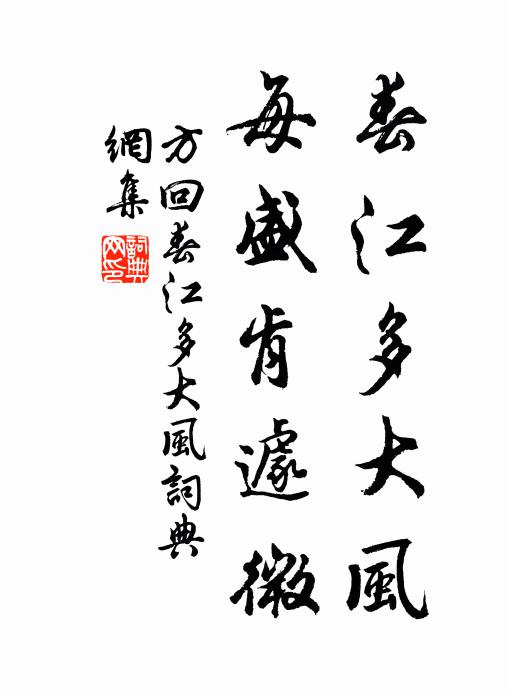 春江多大風
每盛肯遽微
方回春江多大風詞典
網集
詞典
网印